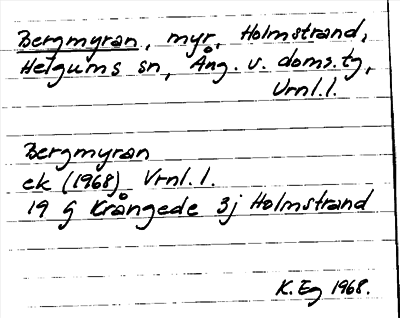 Bergmyran, myr, Holmstrand,
Helgums sn, Ång. v. doms.tg,
Vrnl.l.
Bergmyran
ek (1968) Vrnl.l.
19 G Krångede 3j Holmstrand
K. Eg 1968.